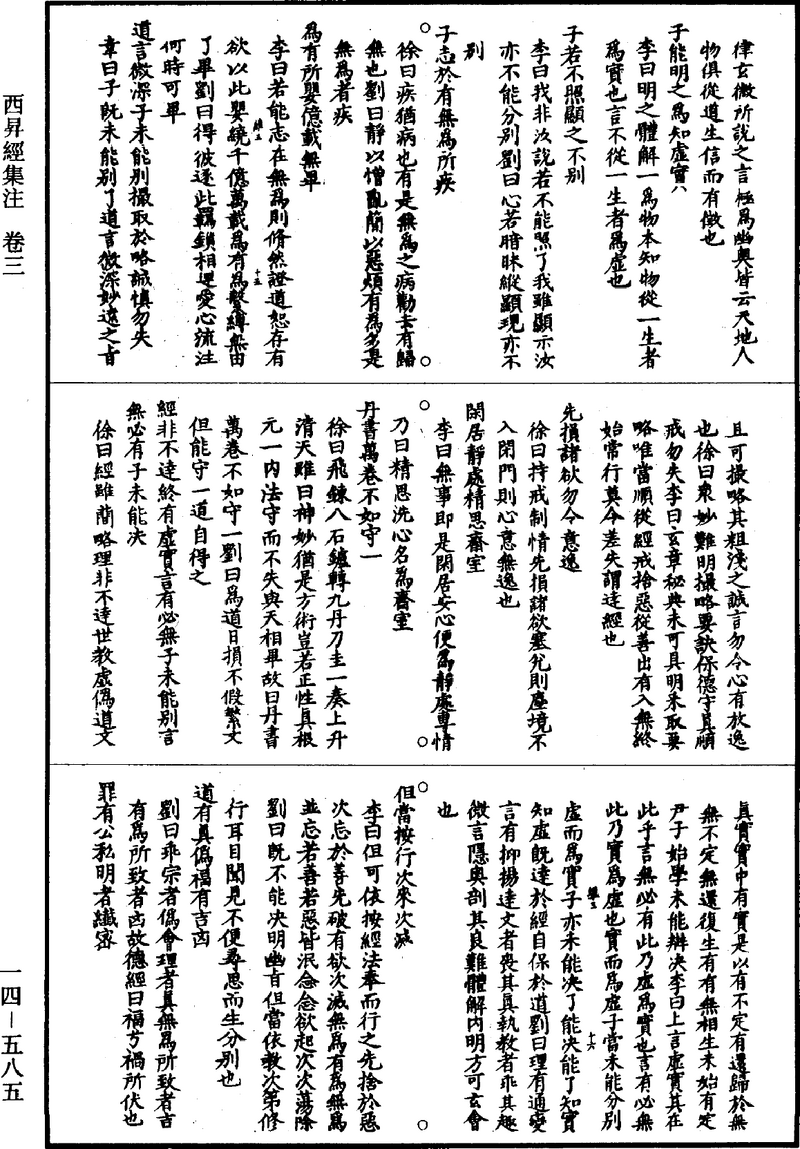 西昇經集注　卷三
律玄微所說之言極爲幽奧皆云天地人
物俱從道生信而有徵也
子能明之爲知虛實八
李曰明之體解一爲物本知物從一生者
爲實也言不從一生者爲虛也
子若不照顯之不別
李曰我非汝說若不能照了我雖顯示汝
亦不能分別劉曰心若暗昧縱顯現亦不
別
子志於有無爲所疾
徐曰疾猶病也有是無爲之病勸去有歸
無也劉曰靜以憎亂簡以惡煩有爲多是
無爲者疾
爲有所嬰億載無畢
李曰若能志在無爲則翛然證道恕存有
欲以此嬰繞千億萬載爲有爲繫縛無由
了畢劉曰得彼逐此羈鎖相迴愛心流注
何時可畢
道言微深子未能別撮取於略誠慎勿失
韋曰子旣未能別了道言微深妙遠之旨
且可撮略其粗淺之誠言勿令心有放逸
也徐曰衆妙難明撮略要訣保德守眞順
戒勿失李曰玄章秘典未可具明采取要
略唯當順從經戒捨惡從善出有入無終
始常行莫令差失謂達經也
先損諸欲勿令意逸
徐曰持戒制情先損諸欲塞兌則塵境不
入閉門則心意無逸也
閑居靜處精思齋室
李曰無事卽是閑居安心便爲靜處專情
乃曰精思洗心名爲齋室
丹書萬卷不如守一
徐曰飛鍊八石鑪轉九丹刀圭一奏上升
清天雖曰神妙猶是方術豈若正性眞根
元一內法守而不失與天相畢故曰丹書
萬卷不如守一劉曰爲道日損不假繁文
但能守一道自得之
經非不達終有虛實言有必無子未能別言
無必有子未能決
徐曰經雖簡略理非不達世教虛僞道文
眞實實中有實是以有不定有還歸於無
無不定無還復生有有無相生未始有定
尹子始學未能辦決李曰上言虛實其在
此乎言無必有此乃虛爲實也言有必無
此乃實爲虛也實而爲虛子當未能分別
虛而爲實子亦未能決了能決能了知實
知虛旣達於經自保於道劉曰理有通變
言有抑揚達文者喪其眞執教者乖其趣
微言隱奧剖其良難體解內明方可玄會
也
但當按行次來次滅
李曰但可依按經法奉而行之先捨於惡
次忘於善先破有欲次滅無爲有爲無爲
並忘若善若惡皆泯念念欲起次次蕩除
劉曰旣不能決明幽旨但當依教次第修
行耳目聞見不便尋思而生分別也
道有眞僞福有吉凶
劉曰乖宗者僞會理者眞無爲所致者吉
有爲所致者凶故德經曰福兮禍所伏也
罪有公私明者纎密
一四－五八五